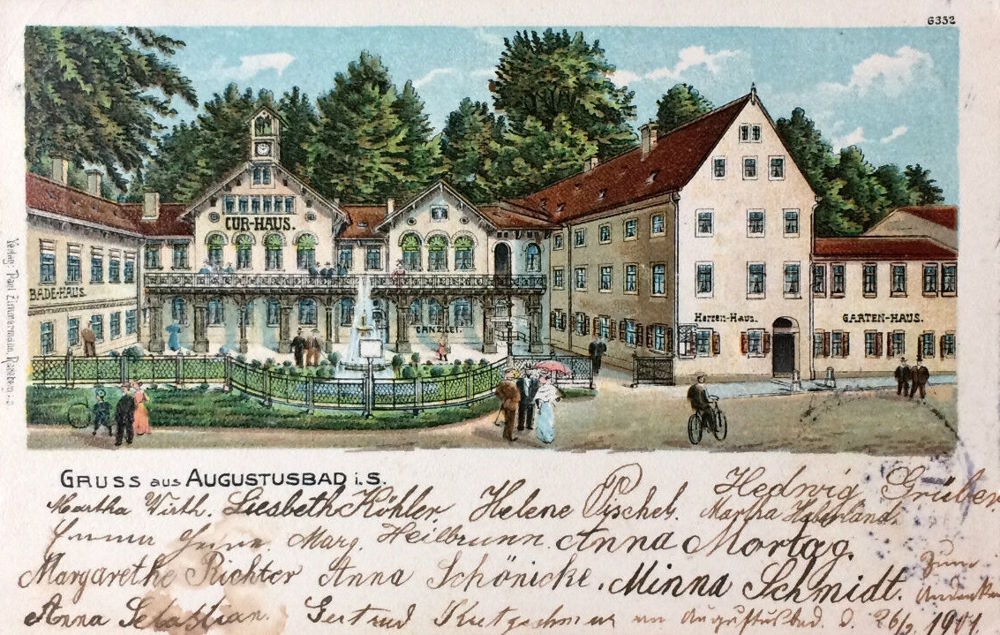 6332
CUR-HAUS.
BADE-HAUS.
CANZLEI.
Herren-Haus.
GARTEN-HAUS.
Verlag Paul Zimmermann,
GRUSS aus AUGUSTUSBAD i. S.
Martha Wirth. Liesbeth Köhler Helene Pischel. Hedwig Grübler
Martha Haberland.
Marg. Heilbrunn. Anna Mortag.
Margarethe Richter Anna Schönicke. Minna Schmidt.
Zum Andenken
Anna Sebastian. Gertrud an Augustusbad. d. 26/2 1901.